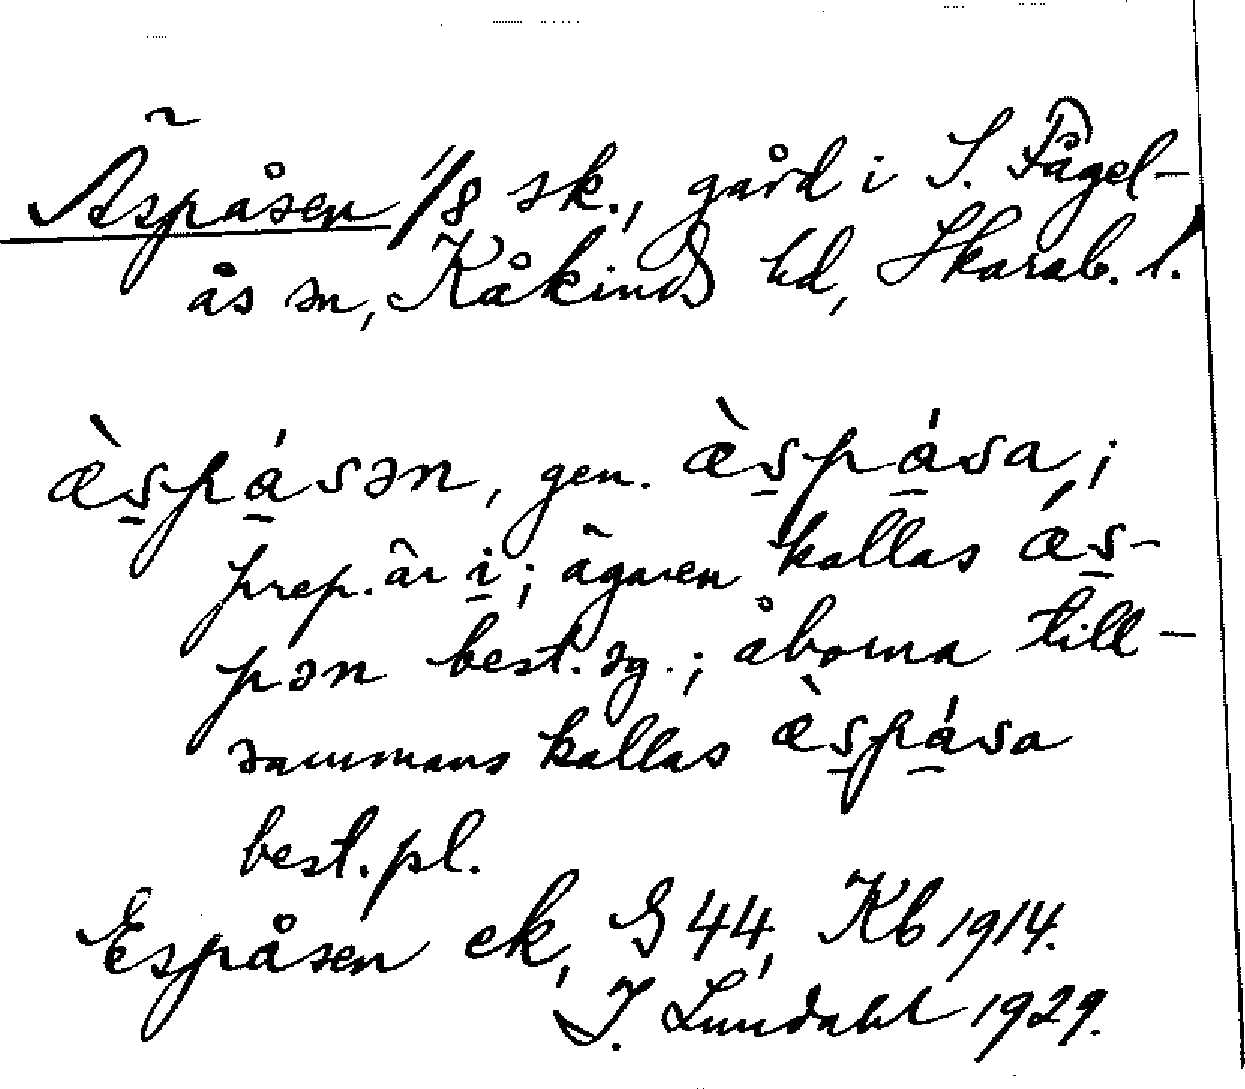 Äspåsen 1/8 sk., gård i S. Fågel-
ås sn, Kåkinds hd, Skarab. l.
æ̀s̠pá̠sən, gen. æ̀s̠pá̠sa;
prep. är i̠; ägaren kallas ǽs̠-
pən best. sg.; åborna till-
sammans kallas æ̀s̠pá̠sa
best. pl.
Espåsen ek, G 44, Kb 1914.
I. Lundahl 1929.